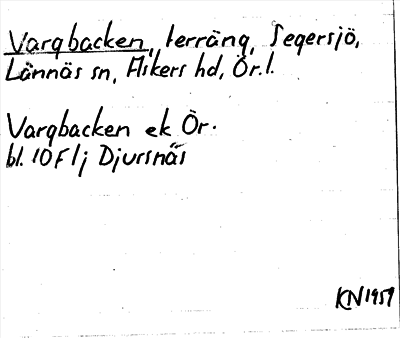 Vargbacken, terräng, Segersjö,
Lännäs sn, Askers hd, Ör. l.
Vargbacken ek Ör.
bl. 10 F 1 j Djursnäs
KN 1951